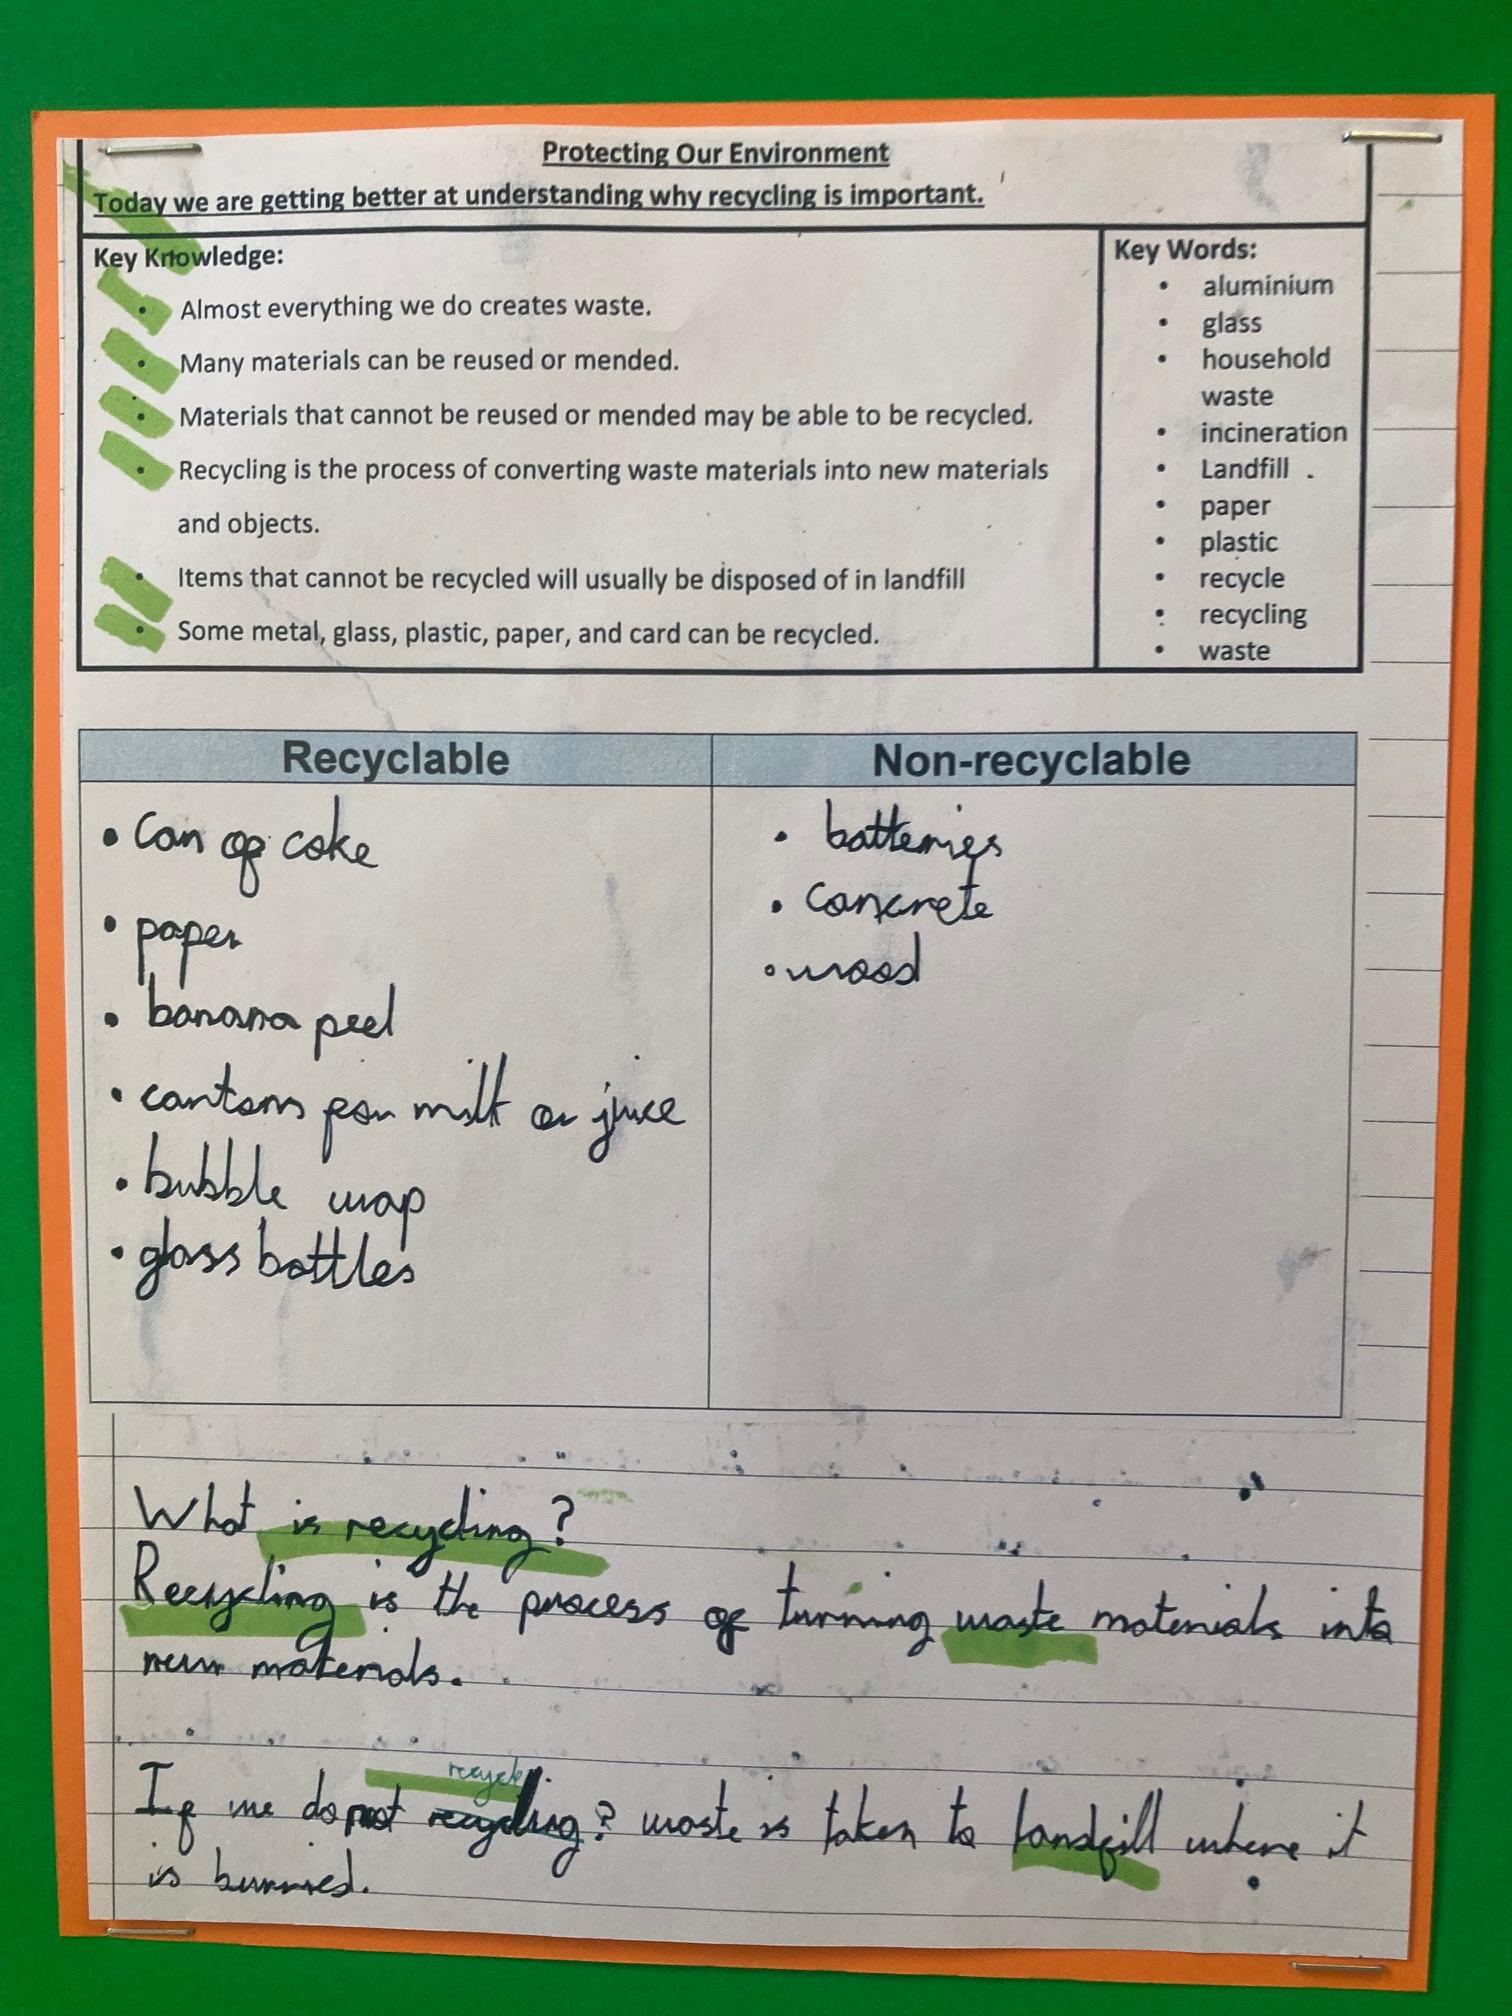 Protecting Our Environment
Today we are getting better at understanding why recycling is important.
Key Knowledge:
• Almost everything we do creates waste.
• Many materials can be reused or mended.
• Materials that cannot be reused or mended may be able to be recycled.
• Recycling is the process of converting waste materials into new materials
and objects.
• Items that cannot be recycled will usually be disposed of in landfill
• Some metal, glass, plastic, paper, and card can be recycled.
Key Words:
• aluminium
• glass
• household
waste
• incineration
• Landfill .
• paper
• plastic
• recycle
• recycling
• waste
Recyclable
• Can of coke
• paper
• banana peel
• cartons for milk or juce
• bubble wrap
• glass bottles
Non-recyclable
• batteries
• concrete
• wood
What is recycling?
Recycling is the process of turning waste materials into
new materials.
recycle
If we do not recycling? waste is taken to landfill where it
is burried.